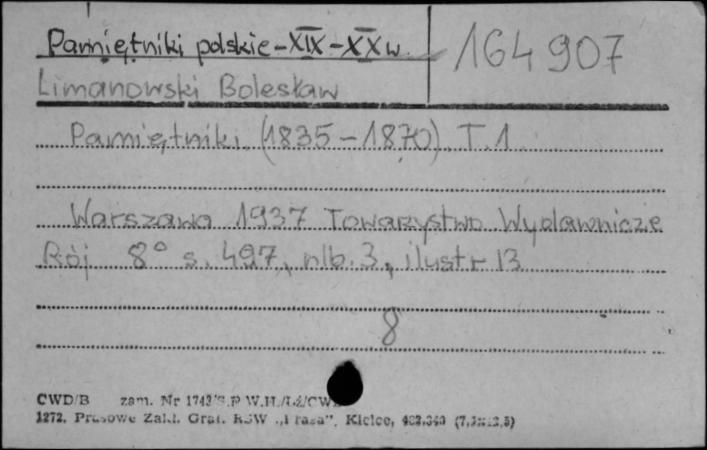 Pamiętniki polskie - XIX - XX w.
164907
Limanowski Bolesław
Pamiętniki (1835-1870). T.1
Warszawa 1937 Towarzystwo Wydawnicze
Rój 8° s. 497, nlb. 3, ilustr 13
8
CWD/B zam. Nr 1743
1272. Prasowe Zakł. Graf. RSW „Prasa”, Kielce,